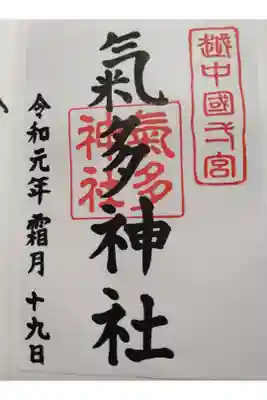 越中國弌宮
氣多神社
氣多
神社
令和元年 霜月 十九日